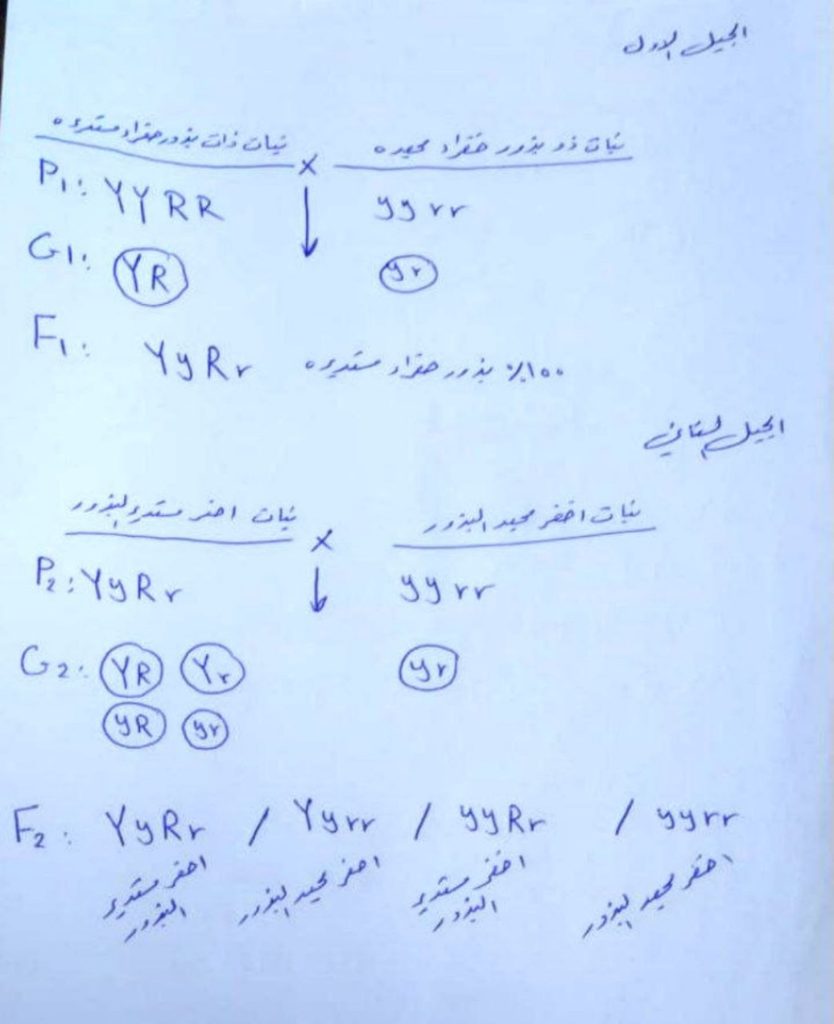 الجيل الاول
نبات ذات بذور صفراء مستديره × نبات ذو بذور خضراء مجعده
P1: YYRR yyrr
G1: YR yr
F1: YyRr ١٠٠٪ بذور صفراء مستديره
الجيل الثاني
نبات اصفر مستدير البذور × نبات اخضر مجعد البذور
P2: YyRr yyrr
G2: YR Yr yr
yR yr
F2: YyRr / Yyrr / yyRr / yyrr
اصفر مستدير البذور اصفر مجعد البذور اخضر مستدير البذور اخضر مجعد البذور